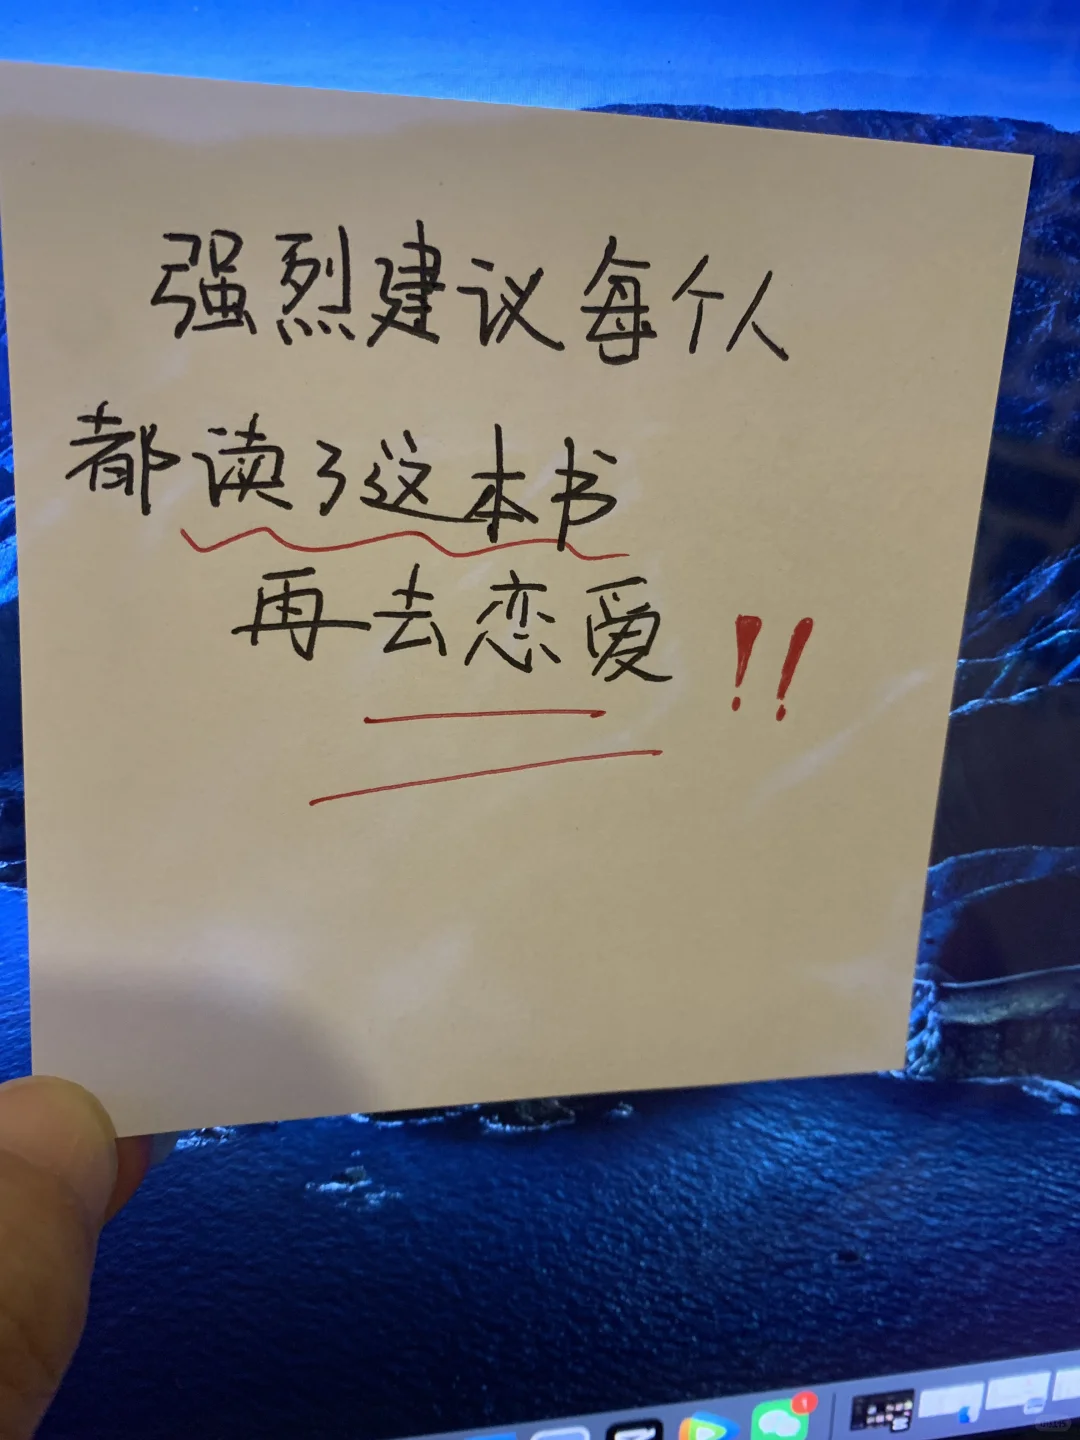 强烈建议每个人
都读了这本书
再去恋爱!!
1